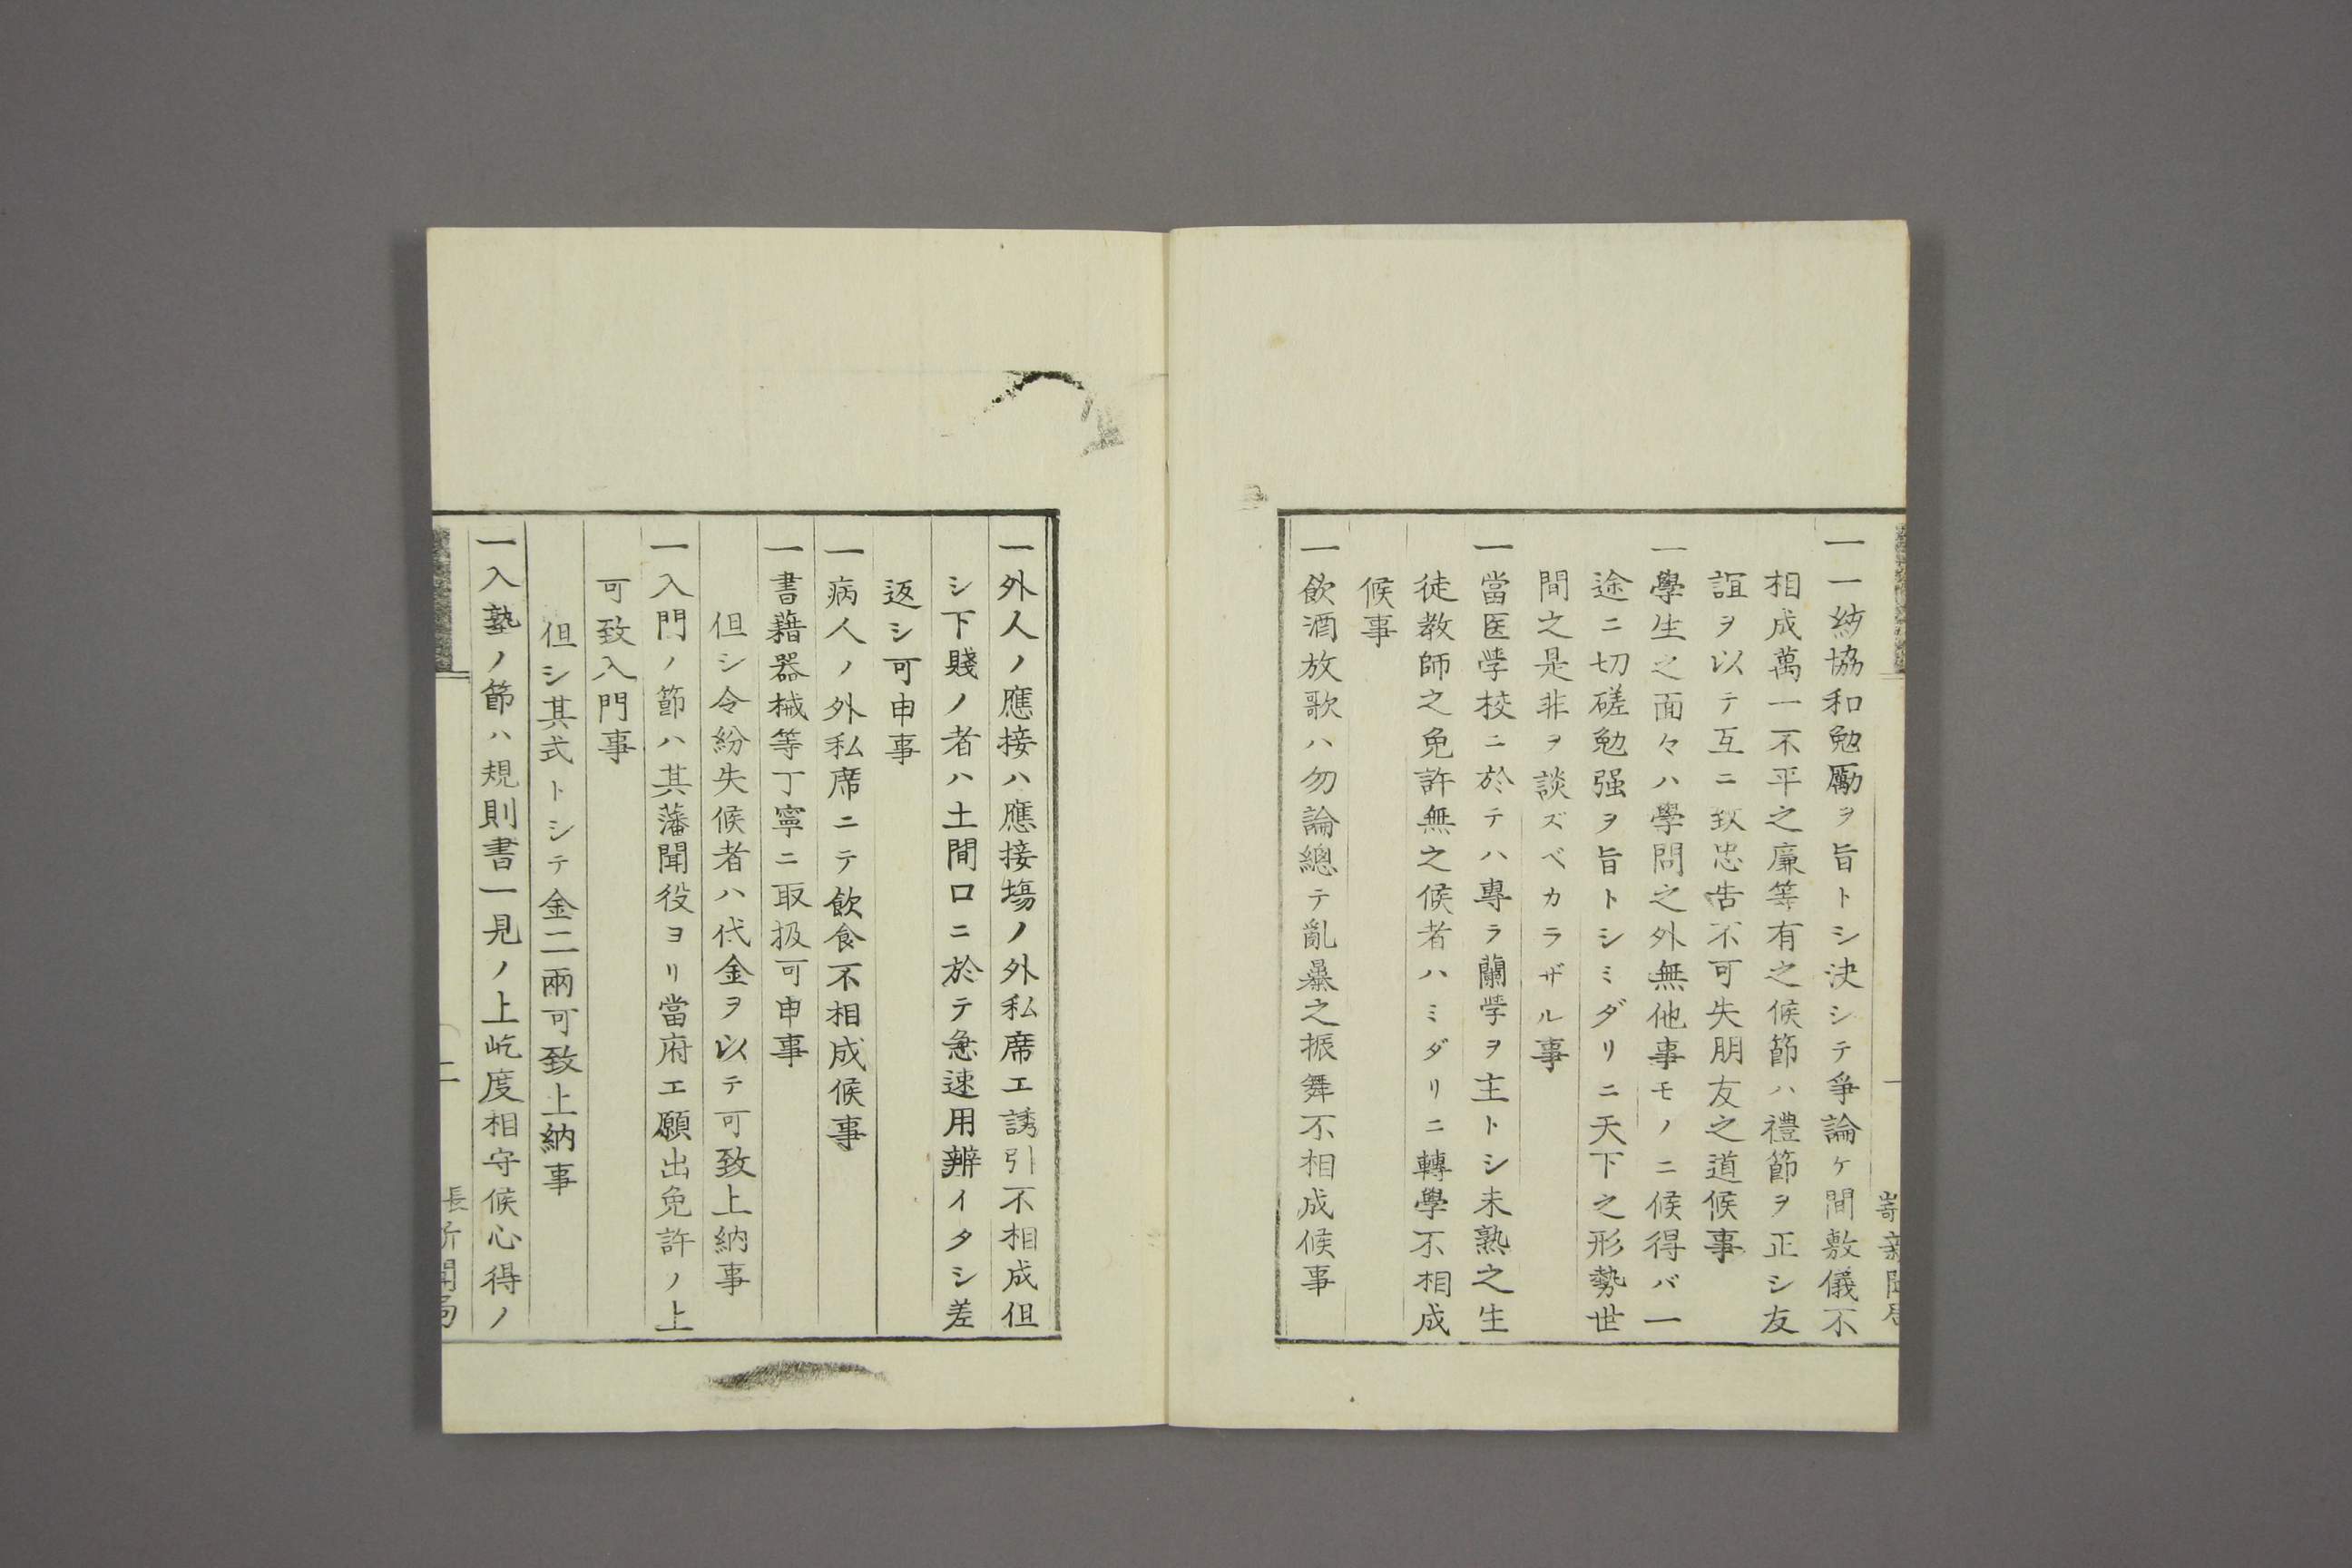 一一紡協和勉勵ヲ旨トシ決シテ爭論ケ間敷儀不
相成萬一不平之廉等有之候節ハ禮節ヲ正シ友
誼ヲ以テ互ニ致忠告不可失朋友之道候事
一學生之面々ハ學問之外無他事モノニ候得バ一
途ニ切磋勉强ヲ旨トシミダリニ天下之形勢世
間之是非ヲ談ズベカラザル事
一當医學校ニ於テハ專ラ蘭學ヲ主トシ未熟之生
徒教師之免許無之候者ハミダリニ轉學不相成
候事
一飲酒放歌ハ勿論總テ亂暴之振舞不相成候事
一外人ノ應接ハ應接塲ノ外私席エ誘引不相成但
シ下賤ノ者ハ土間口ニ於テ急速用辨イタシ差
返シ可申事
一病人ノ外私席ニテ飲食不相成候事
一書藉器械等丁寧ニ取扱可申事
但シ令紛失候者ハ代金ヲ以テ可致上納事
一入門ノ節ハ其藩聞役ヨリ當府エ願出免許ノ上
可致入門事
但シ其式トシテ金二兩可致上納事
一入塾ノ節ハ規則書一見ノ上屹度相守候心得ノ